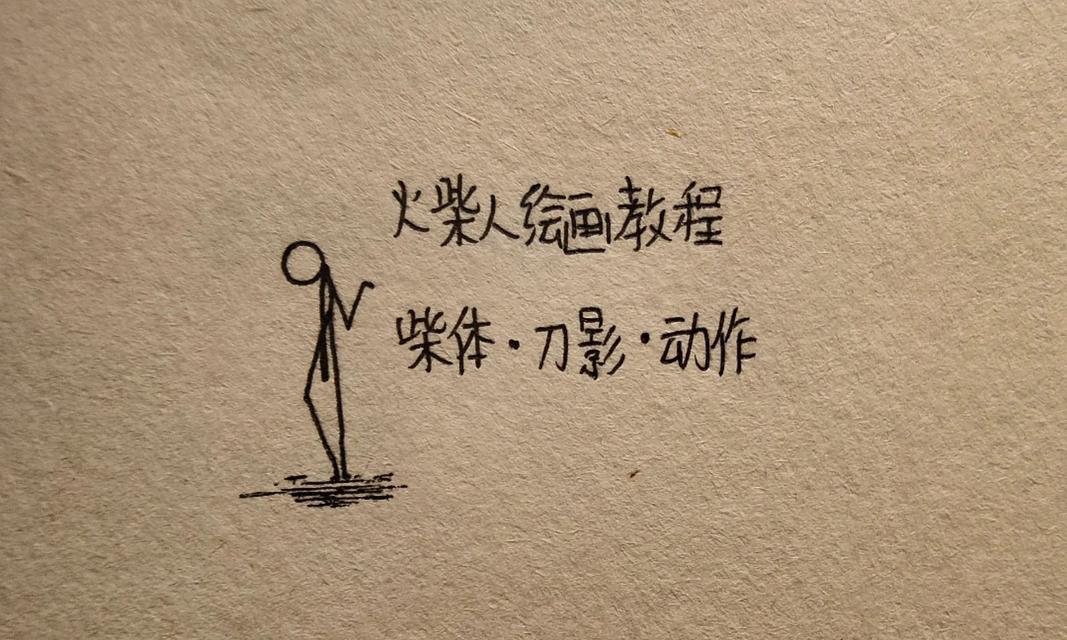 火柴人绘画教程
柴体·刀影·动作